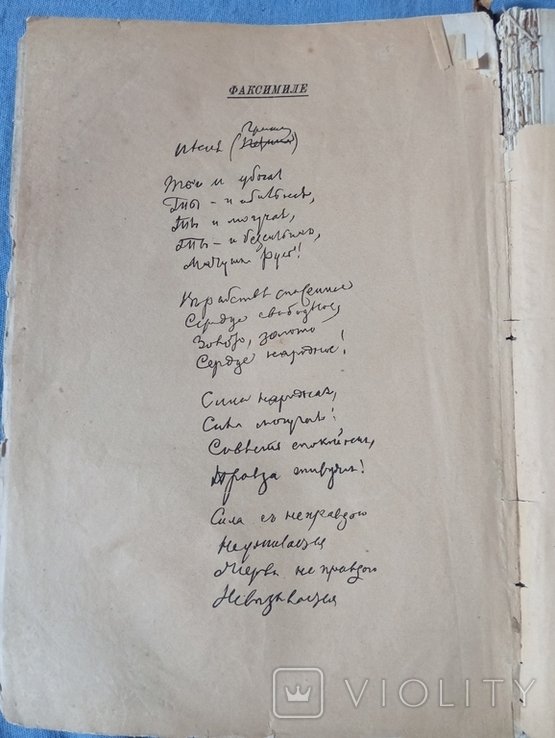 ФАКСИМИЛЕ
Гриши
Песня (
Ты и убогая
Ты - и обильная,
Ты и могучая,
Ты - и безсильная,
Матушка Русь!
Въ рабствѣ спасенное
Сердце свободное,
Золото, золото
Сердце народное!
Сила народная,
Сила могучая!
Совѣсть спокойная,
Правда живучая!
Сила съ неправдою
Неуживается
Жертва неправдою
Невызывается
VIOLITY